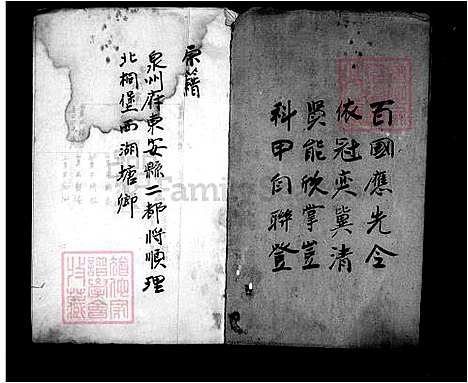 百國應先令
依冠奕冀清
賢能欣掌豈
科甲自聯登
原籍
泉州府東安縣二都將順理
北桐堡西湖塘鄉